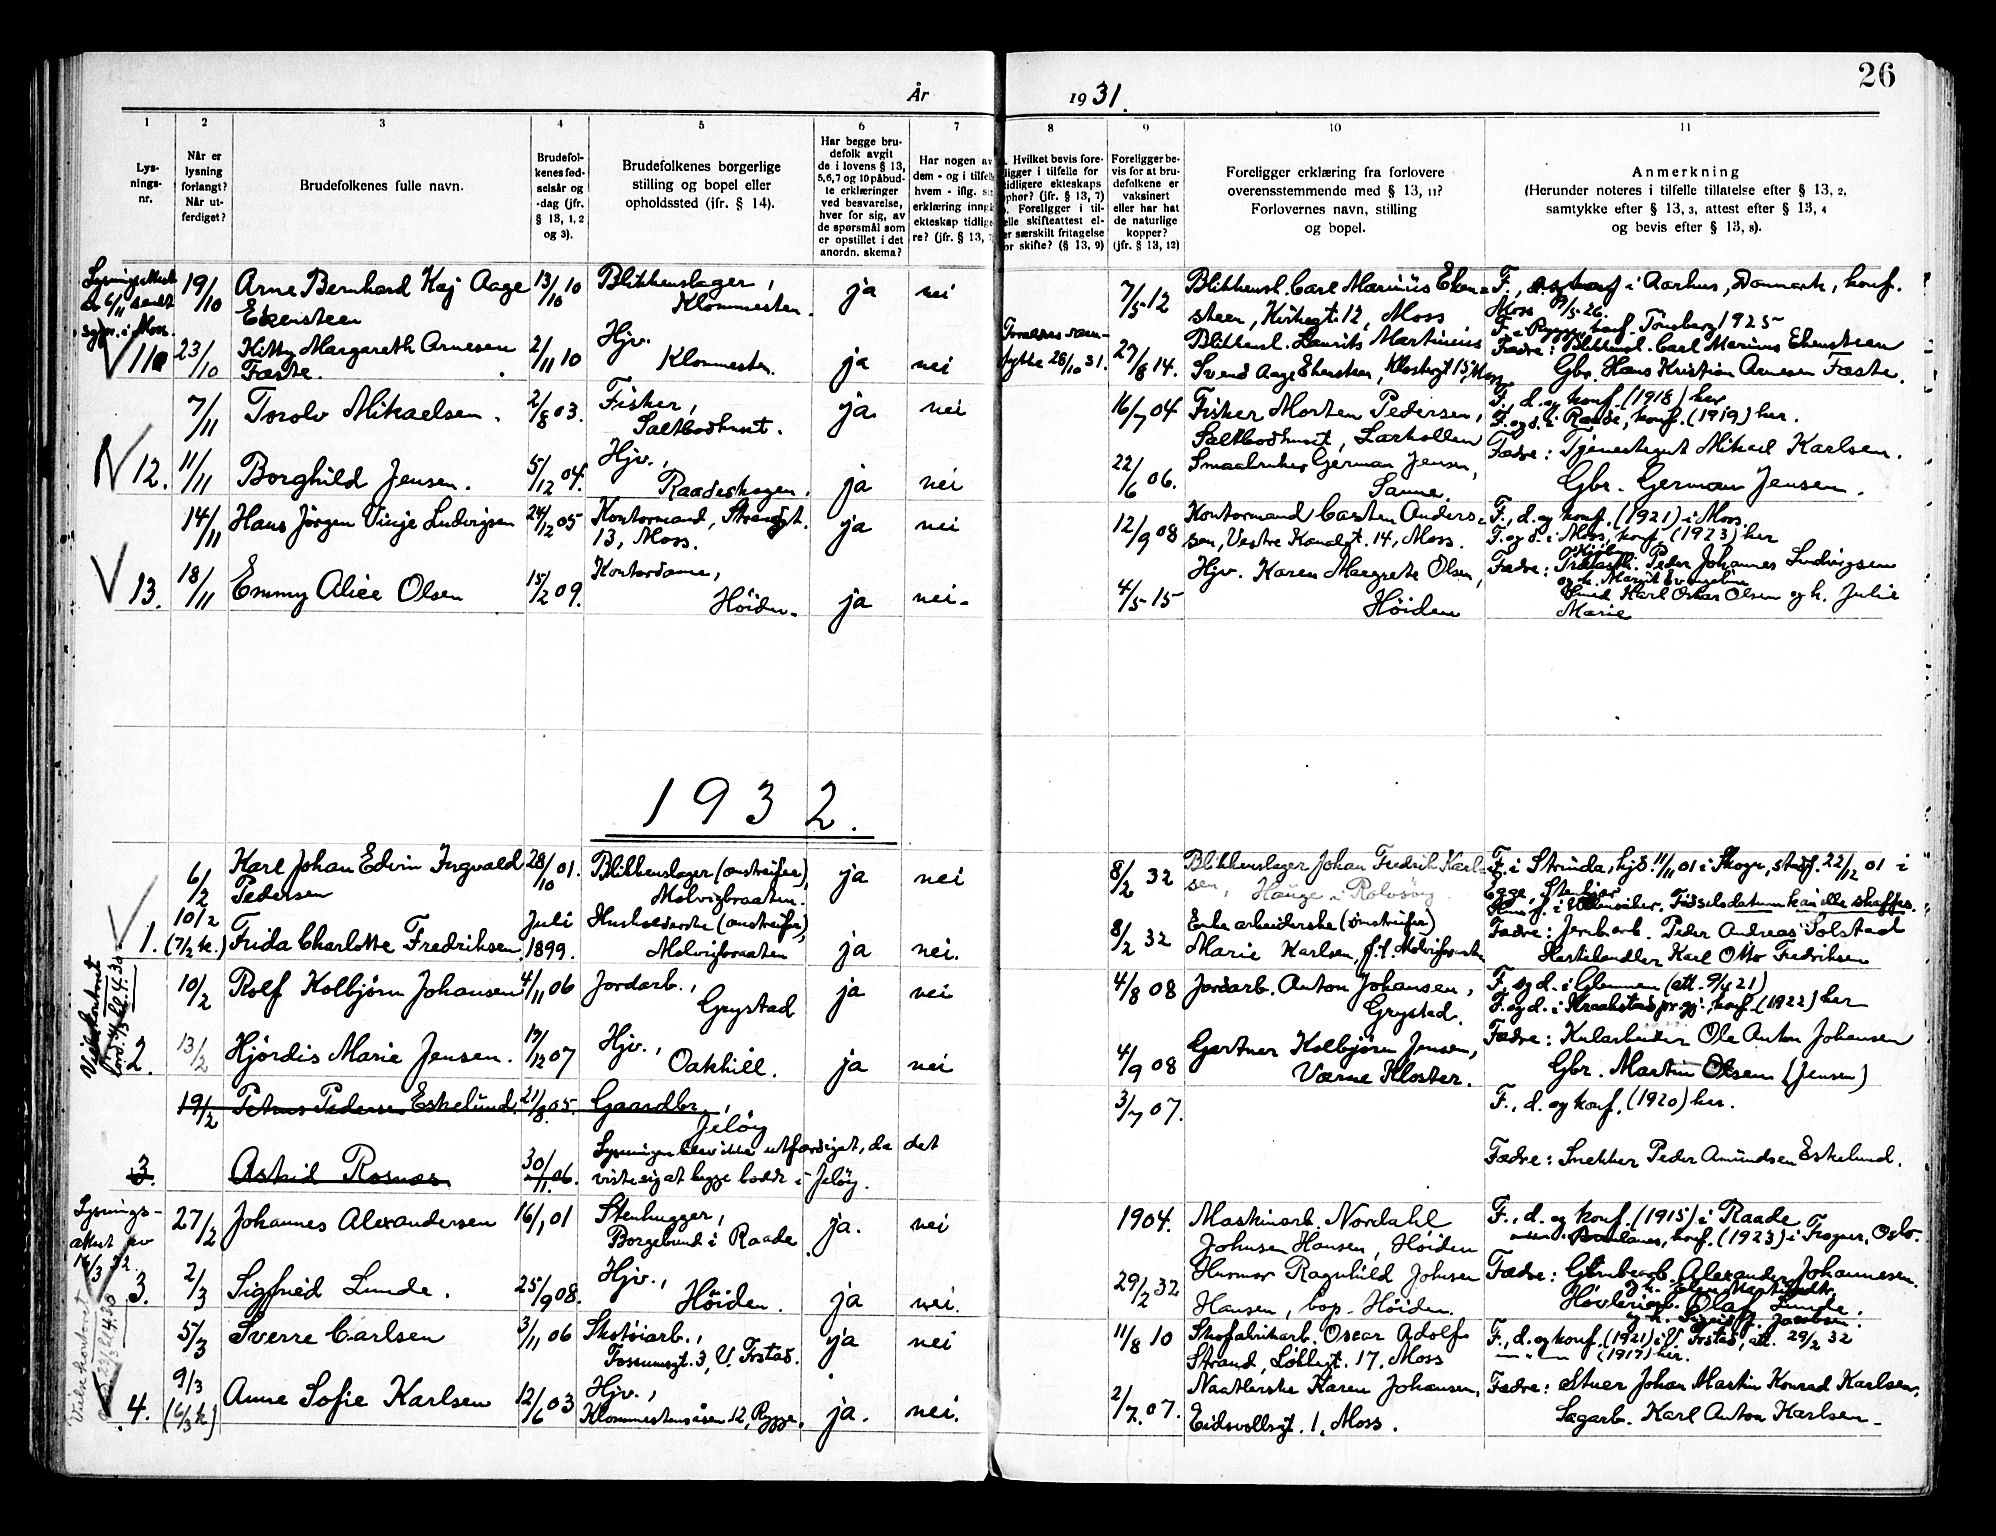 26
År 1931.
1
2
3
4
5
6
7
8
9
10
11
Lys-
nings-
nr.
Når er
lysning
forlangt?
Når ut-
ferdiget?
Brudefolkenes fulle navn.
Brudefol-
kenes fød-
selsår og
-dag (jfr.
§ 13, 1, 2
og 3).
Brudefolkenes borgerlige
stilling og bopel eller
opholdssted (jfr. § 14).
Har begge bru-
defolk avgit
de i lovens § 13,
5,6,7 og 10 påbud-
te erklæringer
ved besvarelse,
hver for sig, av
de spørsmål som
er opstillet i det
anordn. skema?
Har nogen av
dem - og i tilfelle
hvem - iflg. s
erklæring inng
ekteskap tidlige
re? (jfr. § 13,
Hvilket bevis fore-
ligger i tilfelle for
tidligere ekteskaps
ophør? (jfr. § 13, 7)
Foreligger i til-
felle skifteattest el-
er særskilt fritagelse
for skifte? (§ 13, 9)
Foreligger be-
vis for at bru-
defolkene er
vaksinert
eller har hat
de naturlige
kopper?
(jfr. § 13, 12)
Foreligger erklæring fra forlovere
overensstemmende med § 13, 11?
Forlovernes navn, stilling
og bopel.
Anmerkning
(Herunder noteres i tilfelle tillatelse efter § 13, 2,
samtykke efter § 13, 3, attest efter § 13, 4
og bevis efter § 13, 8).
Lysningsattest
av 6/11 sendt
sogn. i Moss.
19/10 Arne Bernhard Kaj Aage
Ekensteen
13/10 10 Blikkenslager,
Klommesten.
ja nei
7/5 12 Blikkensl. Carl Marinius Eken-
steen, Kirkegt. 12, Moss
F., i Aarhus, Danmark, konf.
Moss 9/5-26.
F. i Rygge, konf. Tønsberg 1925
11 23/10 Kitty Margareth Arnesen
Fæste.
2/11 10 Hjv.
Klommesten
ja nei
Foreldres sam-
tykke 28/10 31.
27/8 14. Blikkensl. Laurits Martinius
Svend Aage Ekensteen, Klostergt 15, Moss
Fædre: Blikkensl. Carl Marius Ekensteen
Gbr. Hans Kristian Arnesen Fæste.
7/11 Torolv Mikaelsen.
2/8 03. Fisker,
Saltbodhuset.
ja. nei
16/7 04 Fisker Morten Pedersen,
Saltbodhuset, Larkollen
F., d. og konf. (1918) her
F. og d. i Raade, konf. (1919) her.
12. 11/11 Borghild Jensen.
5/12 04. Hjv.,
Raadeskogen.
ja nei
22/6 06. Smaabruker German Jensen,
Sanne.
Fædre: Tjenestegut Mikael Karlsen.
Gbr. German Jensen.
14/11 Hans Jørgen Vinje Ludvigsen
24/12 05 Kontormand, Strandgt.
13, Moss.
ja nei
12/9 08 Kontormand Carsten Anders-
sen, Vestre Kanalgt. 14, Moss.
F., d. og konf. (1921) i Moss.
F. og d. i Moss, konf. (1923) her
13. 18/11 Emmy Alice Olsen
15/2 09. Kontordame,
Høiden.
ja nei.
4/5 15 Hjv. Karen Margrete Olsen,
Høiden
Fædre: Peder Johannes Ludvigsen
og h. Margit Evangeline
Smed Karl Oskar Olsen og h. Julie
Marie
1932.
6/2 Karl Johan Edvin Ingvald
Pedersen
28/10 01. Blikkenslager (omstreifer),
Molvigbraaten.
ja nei
8/2 32 Blikkenslager Johan Fredrik Karl-
sen, Hauge i Rolvsøy
F. i Strinda, hjd. 11/11 01 i Skogn, stadf. 22/12 01 i
Egge, Stenkjær
Fødselsdatum kan ikke skaffes.
1. 10/2
(7/2 k.) Frida Charlotte Fredriksen
Juli
1899. Husholderske (omstreifer),
Molvigbraaten
ja nei.
8/2 32 Enke arbeiderske (omstreifer)
Marie Karlsen, f.t. Molvigbraaten
Fædre: Jernarb. Peder Andreas Solstad
Hestehandler Karl Otto Fredriksen
Vielse kontoret
lørd. kl. 4.30
10/2 Rolf Kolbjørn Johansen
4/11 06 Jordarb.,
Grystad
ja nei
4/8 08 Jordarb. Anton Johansen,
Grystad.
F. og d. i Glemmen (att. 9/4 21)
F. og d. i Kraakstad prgj., konf. (1922) her
2. 13/2 Hjørdis Marie Jensen.
19/12 07 Hjv.,
Oakhill.
ja nei
4/9 08 Gartner Kolbjørn Jensen,
Værne Kloster.
Fædre: Kularbeider Ole Anton Johansen
Gbr. Martin Olsen (Jensen)
19/2 Petrus Pedersen Eskelund.
21/8 05. Gaardbr.,
Jeløy
3/7 07.
F., d. og konf. (1920) her.
3. Astrid Rosnæs
30/11 06. Lysningen blev ikke utfærdiget, da det
viste sig at begge bodde i Jeløy.
Fædre: Snekker Peder Amundsen Eskelund.
Lysnings-
attest av
16/3 32
27/2 Johannes Alexandersen
16/1 01 Stenhugger,
Borgebund i Raade
ja. nei
1904. Maskinarb. Nordahl
Johnsen Hansen, Høiden
F., d. og konf. (1915) i Raade
konf. (1923) i Frogner, Oslo.
3. 2/3 Sigfrid Lunde.
25/9 08. Hjv.,
Høiden.
ja nei.
29/2 32 Husmor Ragnhild Johnsen
Hansen, bop. Høiden.
Fædre: Alexander Johannesen.
Høvleriarb. Olaf Lunde.
Jacobsen.
Vielse kontoret
kl 4.30
5/3 Sverre Carlsen
3/11 06 Skotøiarb.,
Fossumsgt. 3, V. Frstad.
ja nei
11/8 10 Skofabrikarb. Oscar Adolf
Strand, Løkkegt. 17, Moss
F., d. og konf. (1921) i V. Frstad, att. 29/2 32
(1917) her.
4. 9/3
(6/3 k) Anne Sofie Karlsen
12/6 03 Hjv.,
Klommestensåsen 12, Rygge.
ja. nei.
2/7 07. Naatlerske Karen Johansen,
Eidsvollsgt. 1, Moss.
Fædre: Stuer Johan Martin Konrad Karlsen,
Sagarb. Karl Anton Karlsen